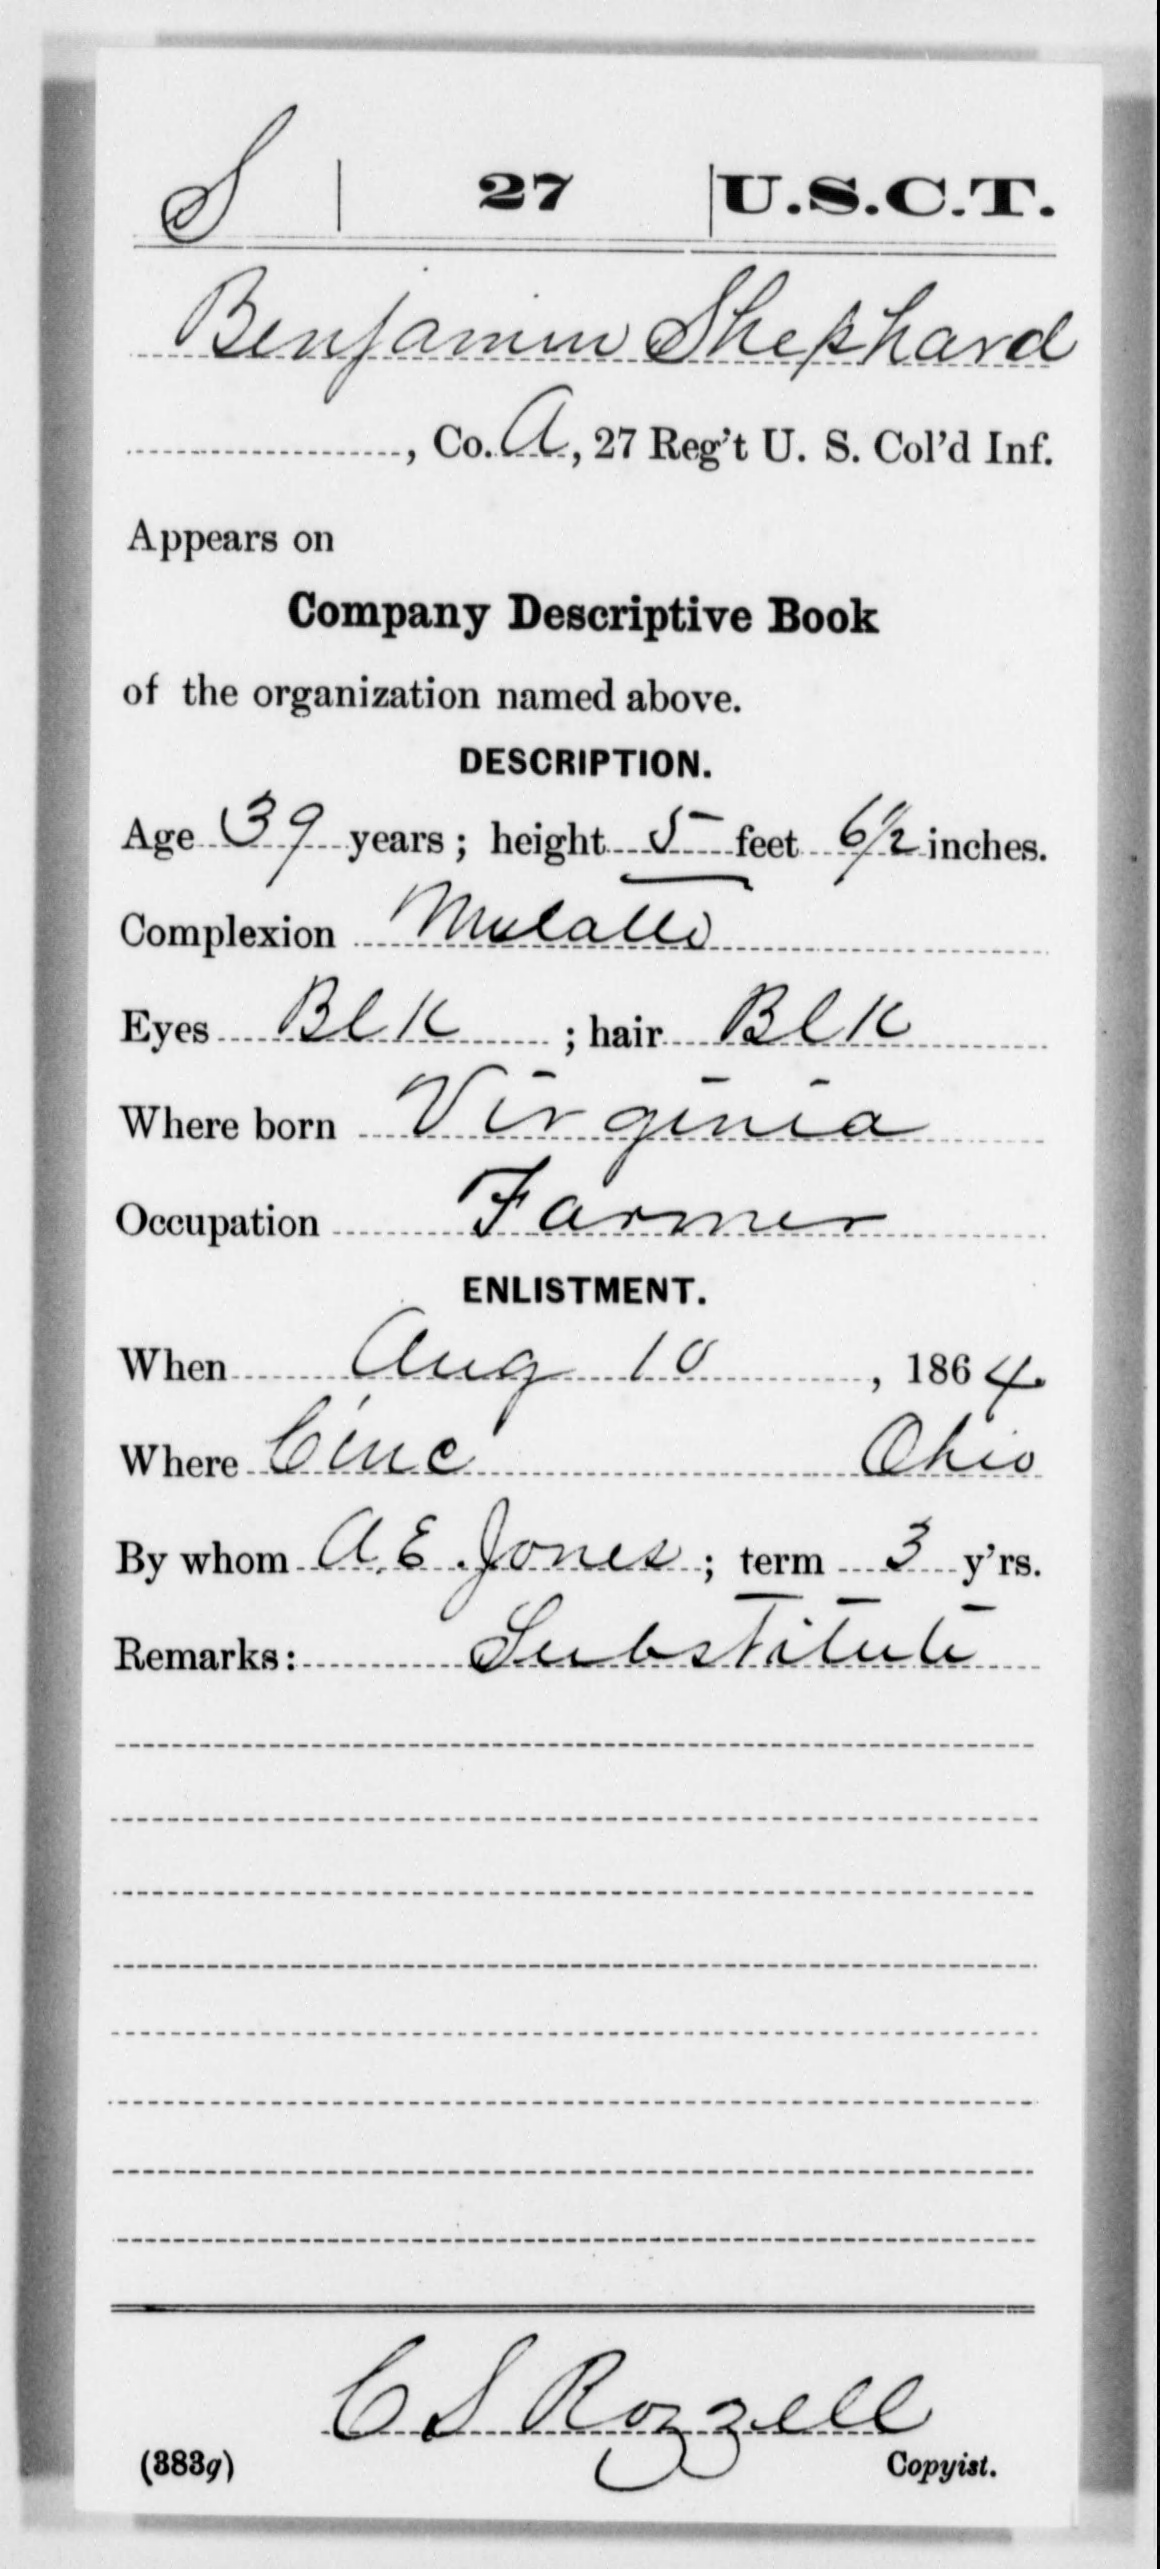 S | 27 | U.S.C.T.
Benjamin Shephard
, Co. A, 27 Reg't U. S. Col'd Inf.
Appears on
Company Descriptive Book
of the organization named above.
DESCRIPTION.
Age 39 years; height 5 feet 6 1/2 inches.
Complexion Mulatto
Eyes Blk ; hair Blk
Where born Virginia
Occupation Farmer
ENLISTMENT.
When Aug 10 , 1864.
Where Cinc Ohio
By whom A. E. Jones ; term 3 y'rs.
Remarks: Substitute
C S Rozzell
(383g) Copyist.